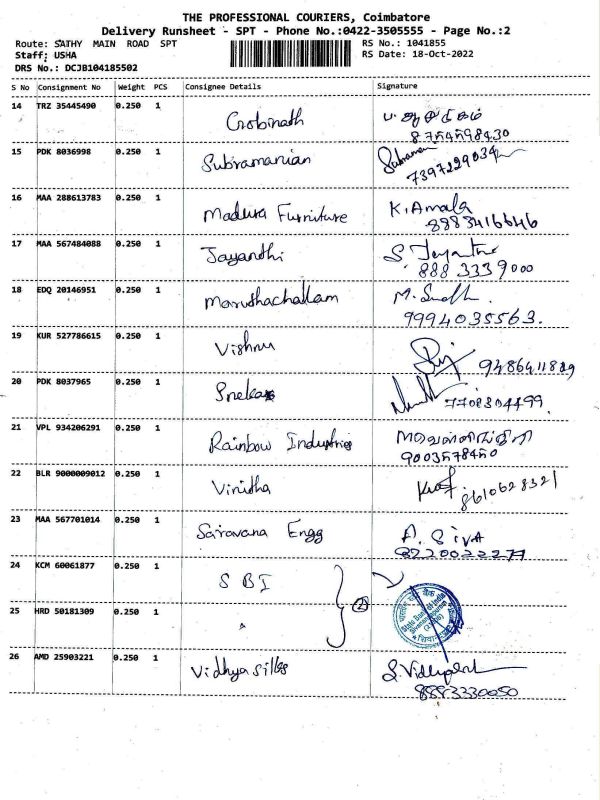 THE PROFESSIONAL COURIERS, Coimbatore
Delivery Runsheet - SPT - Phone No.:0422-3505555 - Page No.:2
Route: SATHY MAIN ROAD SPT
RS No.: 1041855
Staff: USHA
RS Date: 18-Oct-2022
DRS No.: DCJB104185502
S No Consignment No Weight PCS Consignee Details Signature
14 TRZ 35445490 0.250 1 Gobinath
8754598430
15 PDK 8036998 0.250 1 Subramanian
7397229034
16 MAA 288613783 0.250 1 Madura Furniture K. Amala
8883416646
17 MAA 567484088 0.250 1 Jayanthi S
888 333 9000
18 EDQ 20146951 0.250 1 Maruthachallam M.
9994035563.
19 KUR 527786615 0.250 1 Vishnu
9486411889
20 PDK 8037965 0.250 1
7708304499
21 VPL 934206291 0.250 1 Rainbow Industries
9003578450
22 BLR 9000009012 0.250 1 Vinitha
8610628321
23 MAA 567701014 0.250 1 Saravana Engg A. SIVA
8220022277
24 KCM 60061877 0.250 1 SBI
2
State Bank of India
25 HRD 50181309 0.250 1 "
26 AMD 25903221 0.250 1 Vidhya silks
8883330050